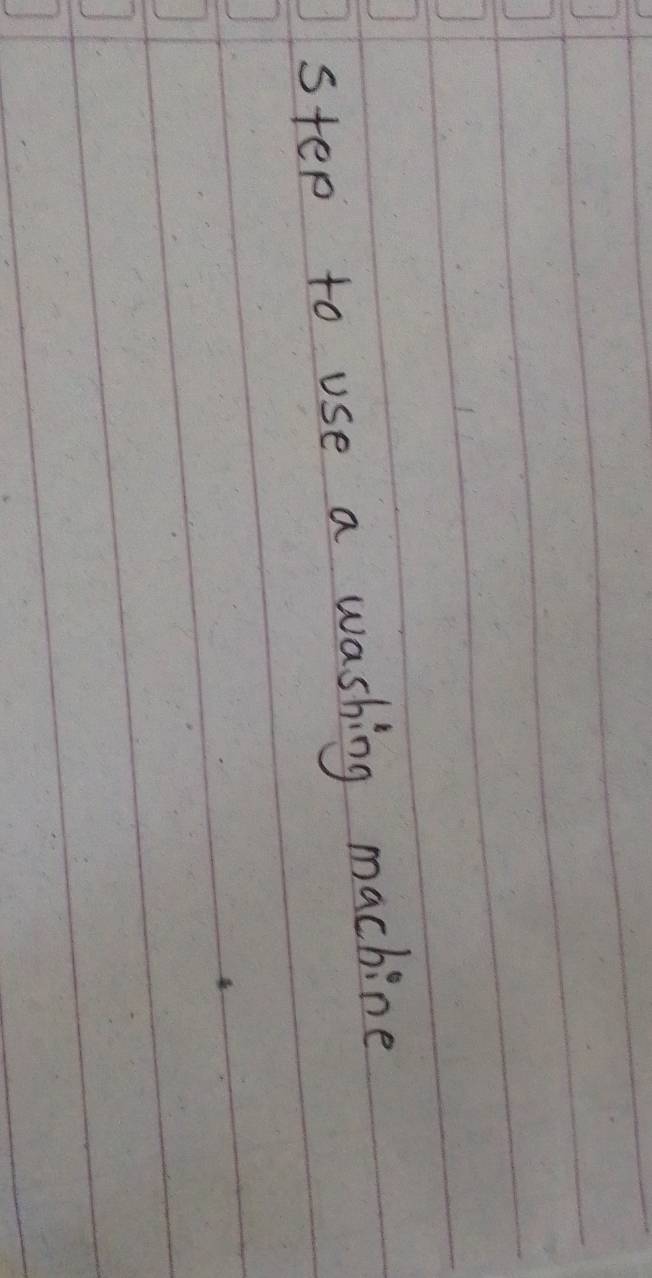 step to use a washing machine